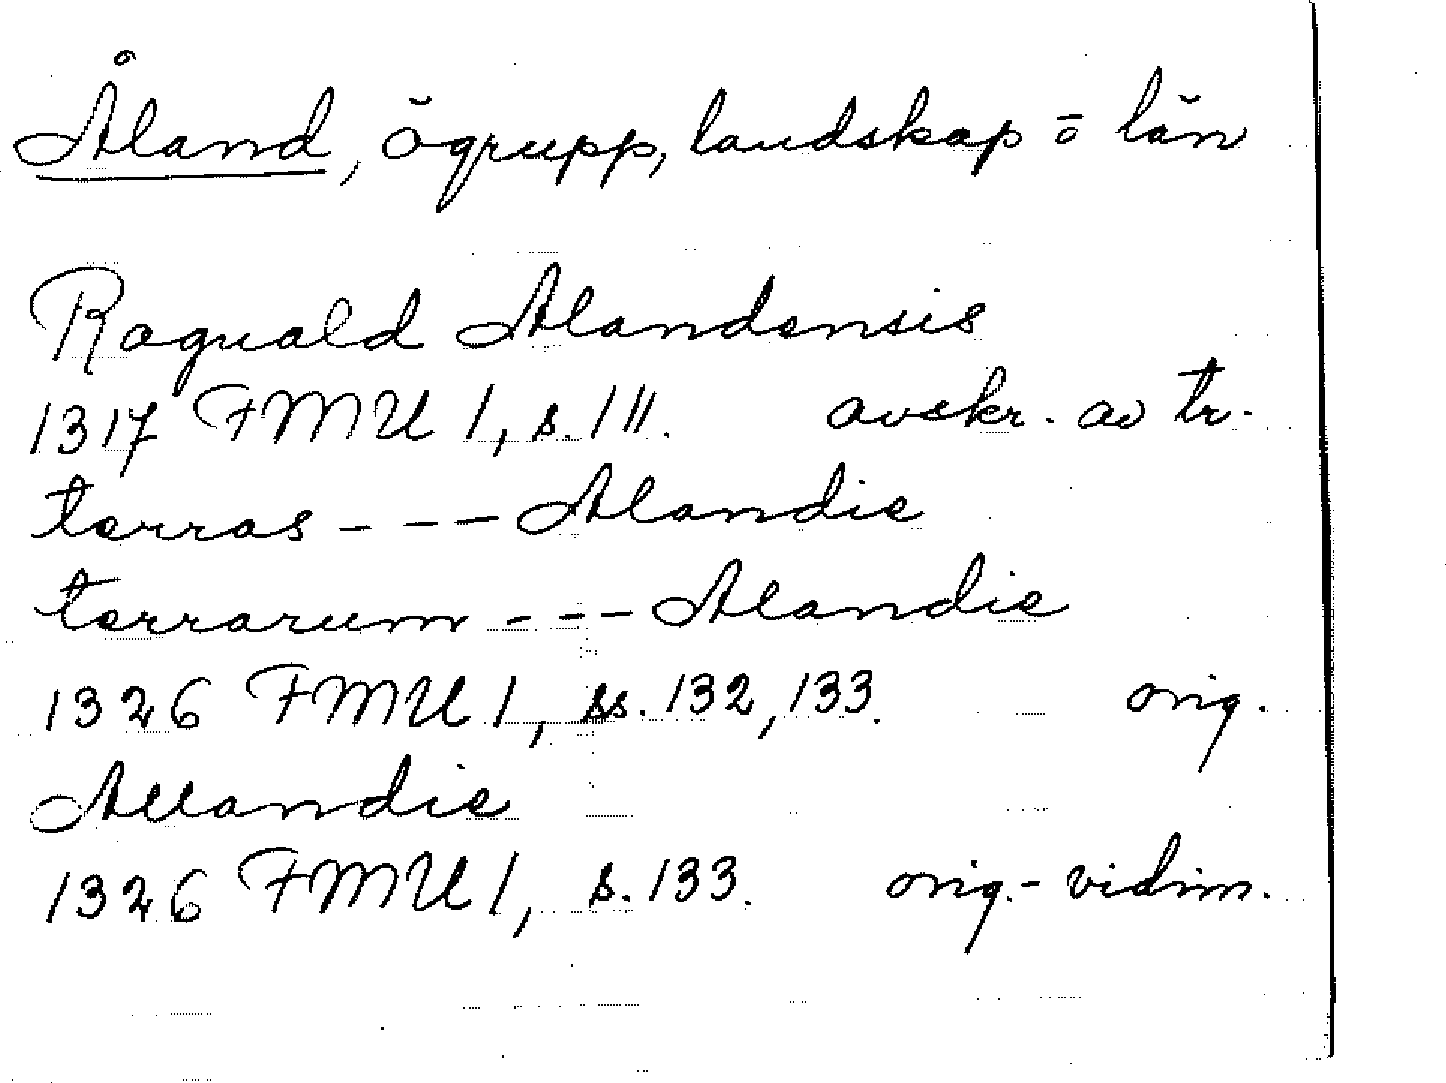 Åland, ögrupp, landskap o län
Raguald Alandensis
1317 FMU 1, s. 111. avskr. av tr.
terras - - - Alandie
terrarum - - - Alandie
1326 FMU 1, ss. 132, 133. orig.
Allandie
1326 FMU 1, s. 133. orig.-vidim.